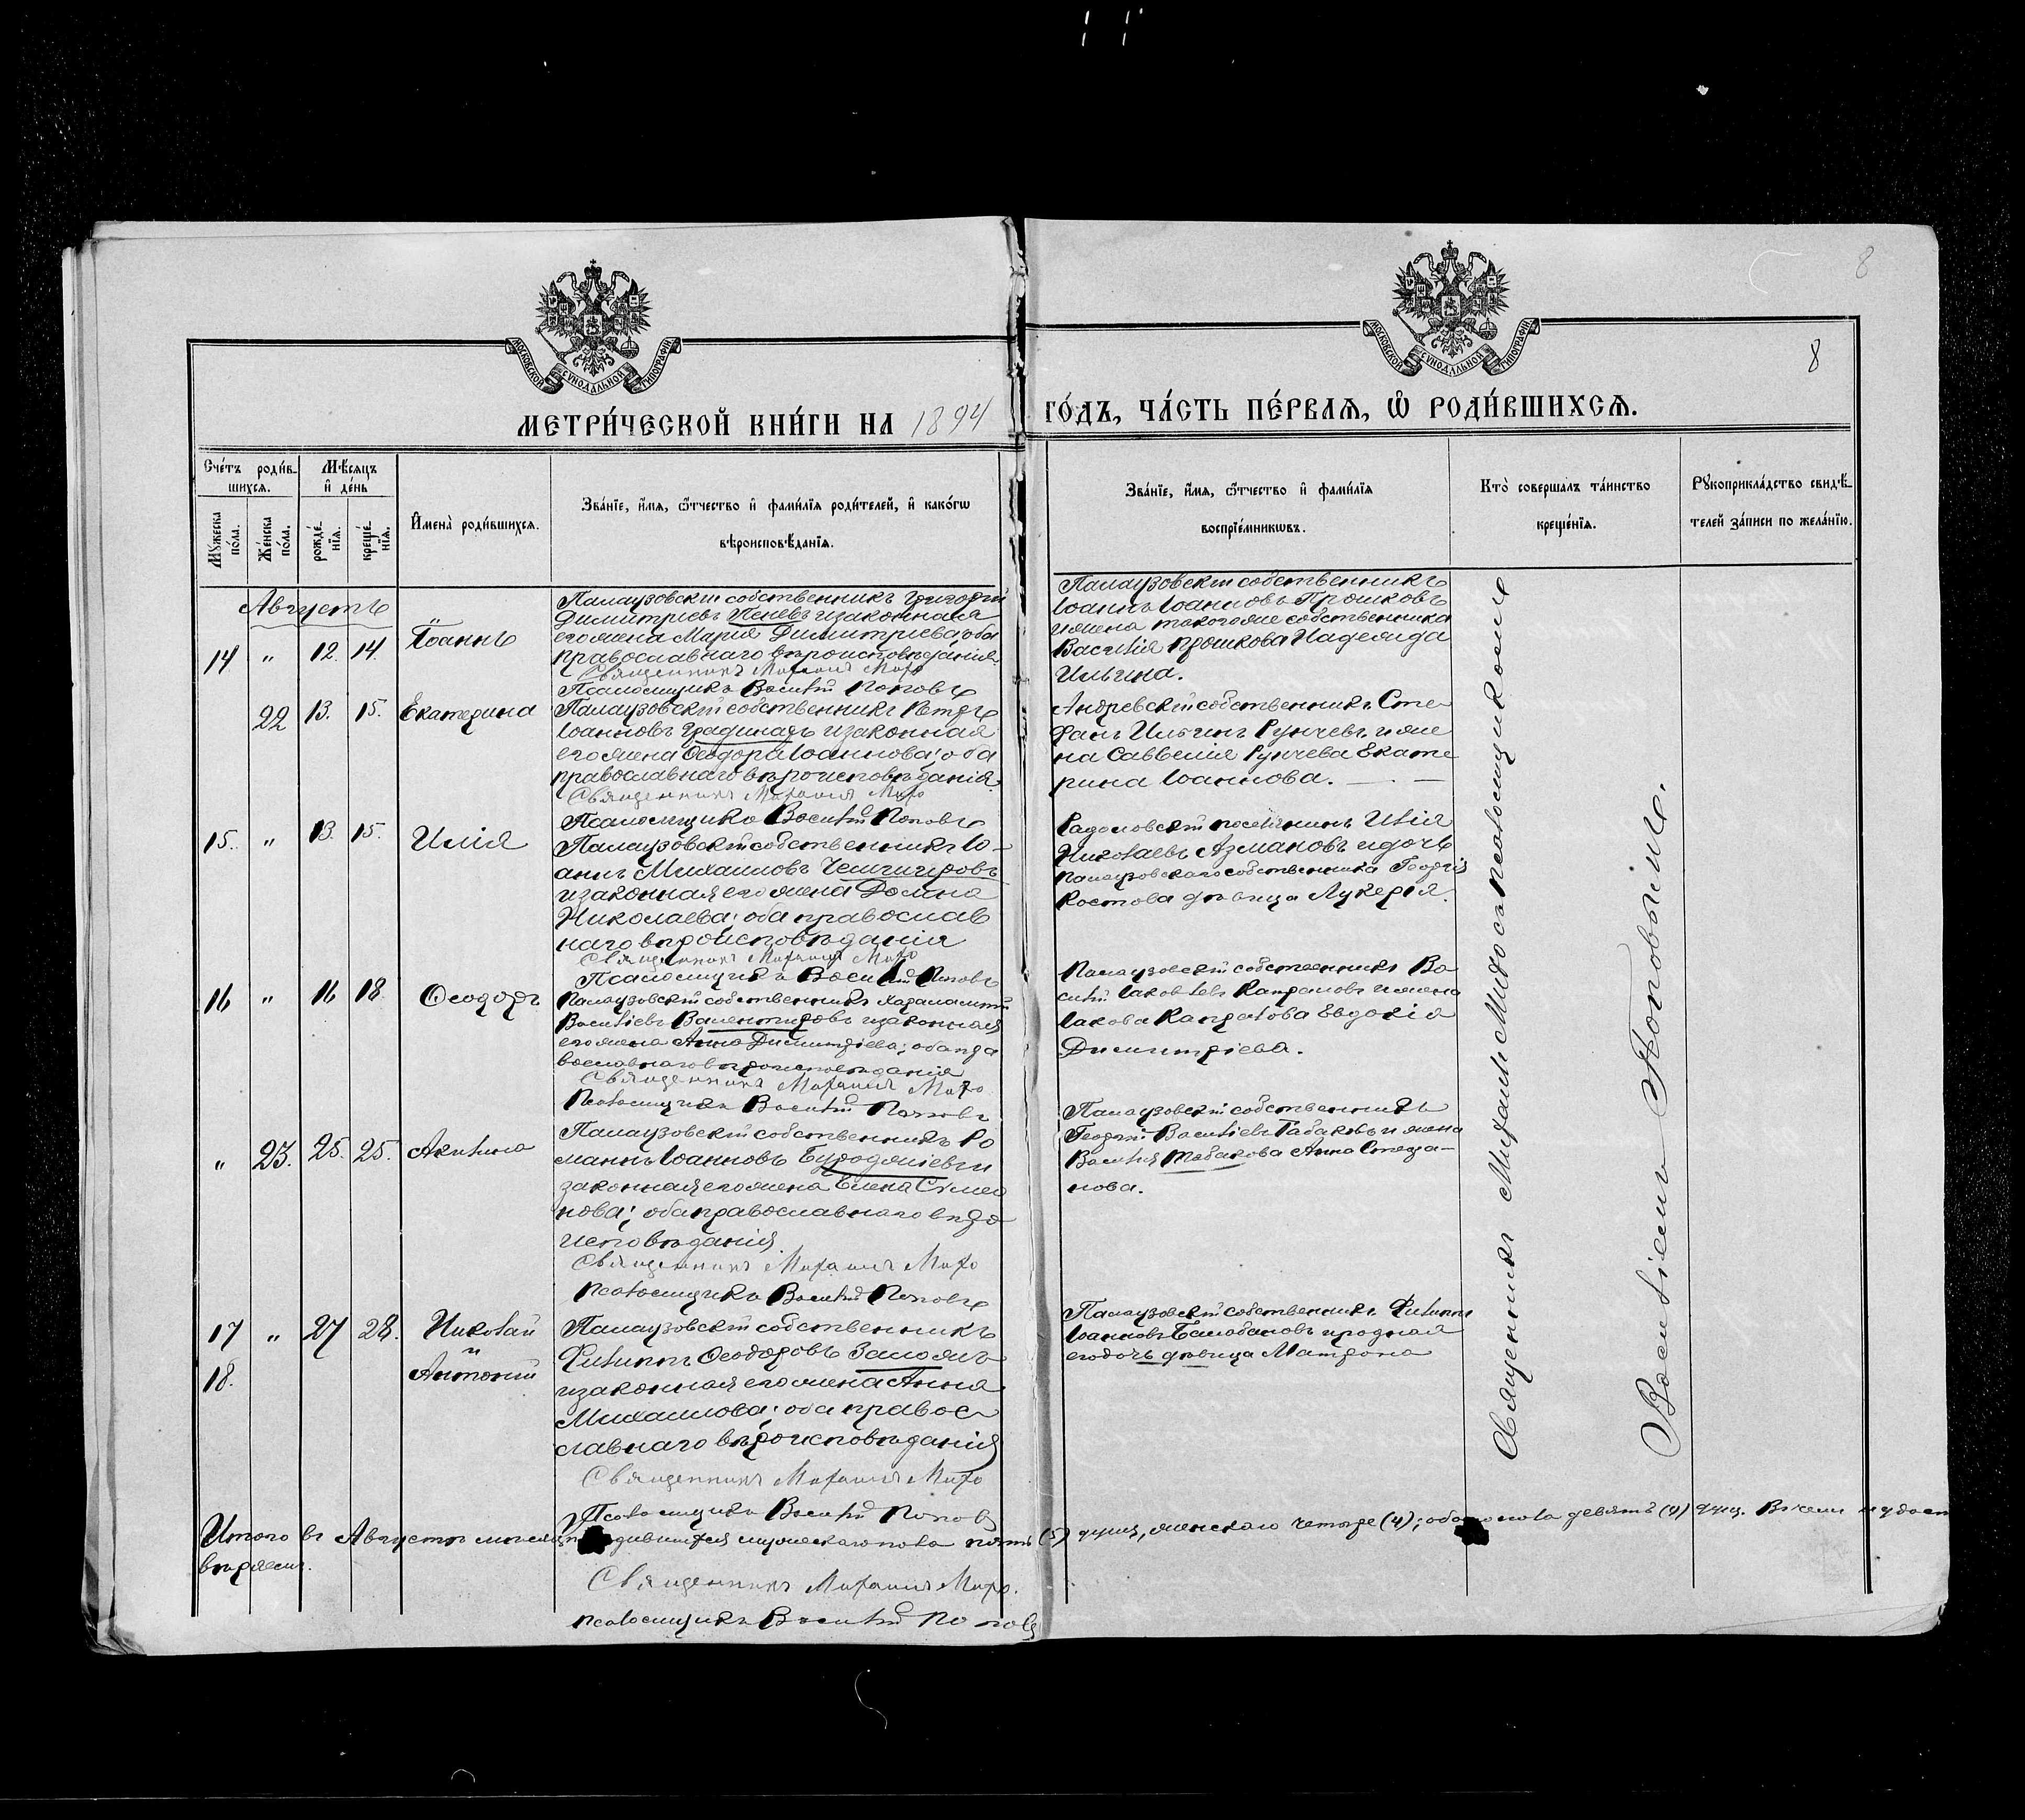 8
8
МОСКОВСКОЙ СУНОДАЛЬНОЙ ТИПОГРАФІИ
МОСКОВСКОЙ СУНОДАЛЬНОЙ ТИПОГРАФІИ
МЕТРИ́ЧЕСКОЙ КНИ́ГИ НА 1894 ГО́ДЪ, ЧА́СТЬ ПЕ́РВАЯ, Ѡ҆ РОДИ́ВШИХСЯ.
Сче́тъ роди́в-
шихся.
Мѣ́сяцъ
и҆ де́нь
Мꙋ́жеска по́ла.
Же́нска по́ла.
рожде́нїя.
креще́нїя.
И҆мена̀ роди́вшихся.
Зва́нїе, и҆́мя, ѻ҆́тчество и҆ фами́лїя роди́телей, и҆ како́гѡ
вѣроисповѣ́данїя.
Зва́нїе, и҆́мя, ѻ҆́тчество и҆ фами́лїя
воспрїе́мникѡвъ.
Кто̀ соверша́лъ та́инство
креще́нїя.
Рꙋкоприкла́дство свидѣ́-
телей за́писи по жела́нїю.
Августъ
14 " 12. 14. Іоаннъ
Палаузовскій собственникъ Григорій
Димитріевъ Пеневъ и законная
его жена Марія Димитріева; оба
православнаго вѣроисповѣданія.
Священникъ Михаилъ Михо
Псаломщикъ Василій Поповъ
Палаузовскій собственникъ
Іоаннъ Іоанновъ Прошковъ
и жена такого же собственника
Василія Прошкова Надежда
Ильина.
22 13. 15. Екатерина
Палаузовскій собственникъ Петръ
Іоанновъ Градинаръ и законная
его жена Ѳеодора Іоаннова; оба
православнаго вѣроисповѣданія
Священникъ Михаилъ Михо
Псаломщикъ Василій Поповъ
Андревскій собственникъ Сте
фанъ Ильинъ Рунчевъ и же
на Савелія Рунчева Екате
рина Іоаннова. —
15. " 13. 15. Илія
Палаузовскій собственникъ Іо-
аннъ Михаиловъ Чешигировъ
и законная его жена Домна
Николаева; оба православ
наго вѣроисповѣданія
Священникъ Михаилъ Михо
Псаломщикъ Василій Поповъ
поселянинъ Илія
Николаевъ Азмановъ и дочь
Палаузовскаго собственника Георгія
Костова дѣвица Лукерія.
16 " 16 18 Ѳеодоръ
Палаузовскій собственникъ Харалампій
Васильевъ и законная
его жена Анна Димитріева; оба пра
вославнаго вѣроисповѣданія
Священникъ Михаилъ Михо
Псаломщикъ Василій Поповъ
Палаузовскій собственникъ Ва
силій Іаковлевъ и жена
Іакова Евдокія
Димитріева.
" 23. 25. 25. Акилина
Палаузовскій собственникъ Ро
манъ Іоанновъ Бурджіевъ и
законная его жена Елена Симео
нова; оба православнаго вѣро
исповѣданія
Священникъ Михаилъ Михо
Псаломщикъ Василій Поповъ
Палаузовскій собственникъ
Георгій Васильевъ Табаковъ и жена
Василія Табакова Анна Стефа-
нова.
17 " 27 28. Николай
и
18. Антоній
Палаузовскій собственникъ
Филиппъ Ѳеодоровъ
и законная его жена Анна
Михаилова; оба правос
лавнаго вѣроисповѣданія
Священникъ Михаилъ Михо
Псаломщикъ Василій Поповъ
Палаузовскій собственникъ Филиппъ
Іоанновъ Балабановъ и родная
его дочь дѣвица Матрона
Священникъ Михаилъ Михо съ псаломщикомъ
Василіемъ Поповымъ.
Итого въ Августѣ мѣсяцѣ родившихся мужескаго пола пять (5) душъ, женскаго четыре (4); обоего пола девять (9) душ. Въ чемъ и удост
вѣряемъ.
Священникъ Михаилъ Михо.
Псаломщикъ Василій Поповъ